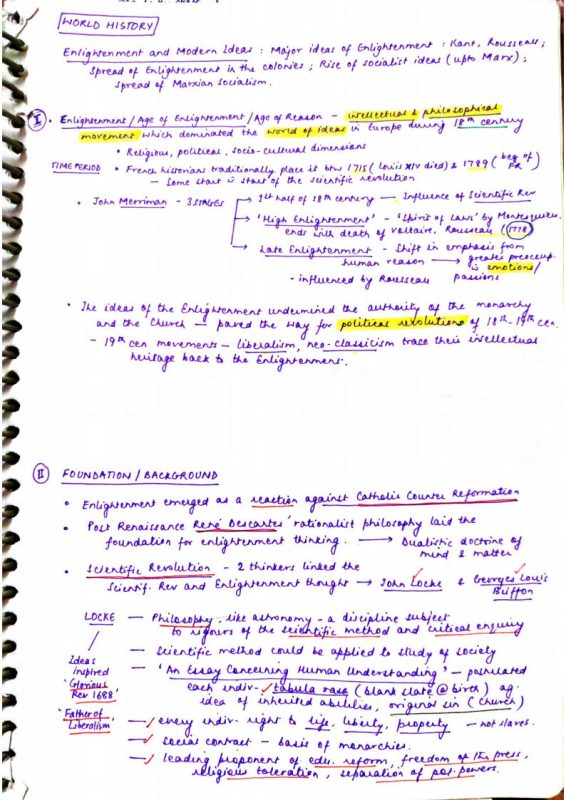 WORLD HISTORY
Enlightenment and Modern Ideas : Major ideas of Enlightenment : Kant, Rousseau;
Spread of Enlightenment in the colonies ; Rise of socialist ideas (upto Marx);
spread of Marxian Socialism.
I • Enlightenment / Age of Enlightenment / Age of Reason – intellectual & philosophical
movement which dominated the world of ideas in Europe during 18th century
• Religious, political, socio-cultural dimensions
TIME PERIOD • French historians traditionally place it btw 1715 (Louis XIV died) & 1789 (beg of FR)
– Some start w start of the scientific revolution
• John Merriman – 3 STAGES → 1st half of 18th century — Influence of Scientific Rev
→ 'High Enlightenment' – 'Spirit of Laws' by Montesquieu.
ends with death of Voltaire, Rousseau (1778)
→ Late Enlightenment – Shift in emphasis from
human reason → greater preoccup.
w emotions/
– influenced by Rousseau passions
• The ideas of the Enlightenment undermined the authority of the monarchy
and the Church – paved the way for political revolutions of 18th-19th cen.
– 19th cen movements – liberalism, neo-classicism trace their intellectual
heritage back to the Enlightenment.
II FOUNDATION / BACKGROUND
• Enlightenment emerged as a reaction against Catholic Counter Reformation
• Post Renaissance René Descartes' rationalist philosophy laid the
foundation for enlightenment thinking. → Dualistic doctrine of
mind & matter
• Scientific Revolution – 2 thinkers linked the
Scientif. Rev and Enlightenment thought → John Locke & Georges Louis
Buffon
LOCKE — Philosophy, like astronomy – a discipline subject
to rigours of the scientific method and critical enquiry
— Scientific method could be applied to study of society
Ideas — 'An Essay Concerning Human Understanding' – postulated
inspired each indiv- tabula rasa (blank slate @ birth) ag.
'Glorious idea of inherited abilities, original sin (church)
Rev 1688'
'Father of — every indiv- right to life, liberty, property – not slaves.
Liberalism' — social contract – basis of monarchies.
— leading proponent of edu. reform, freedom of the press,
religious toleration, separation of pol. powers.